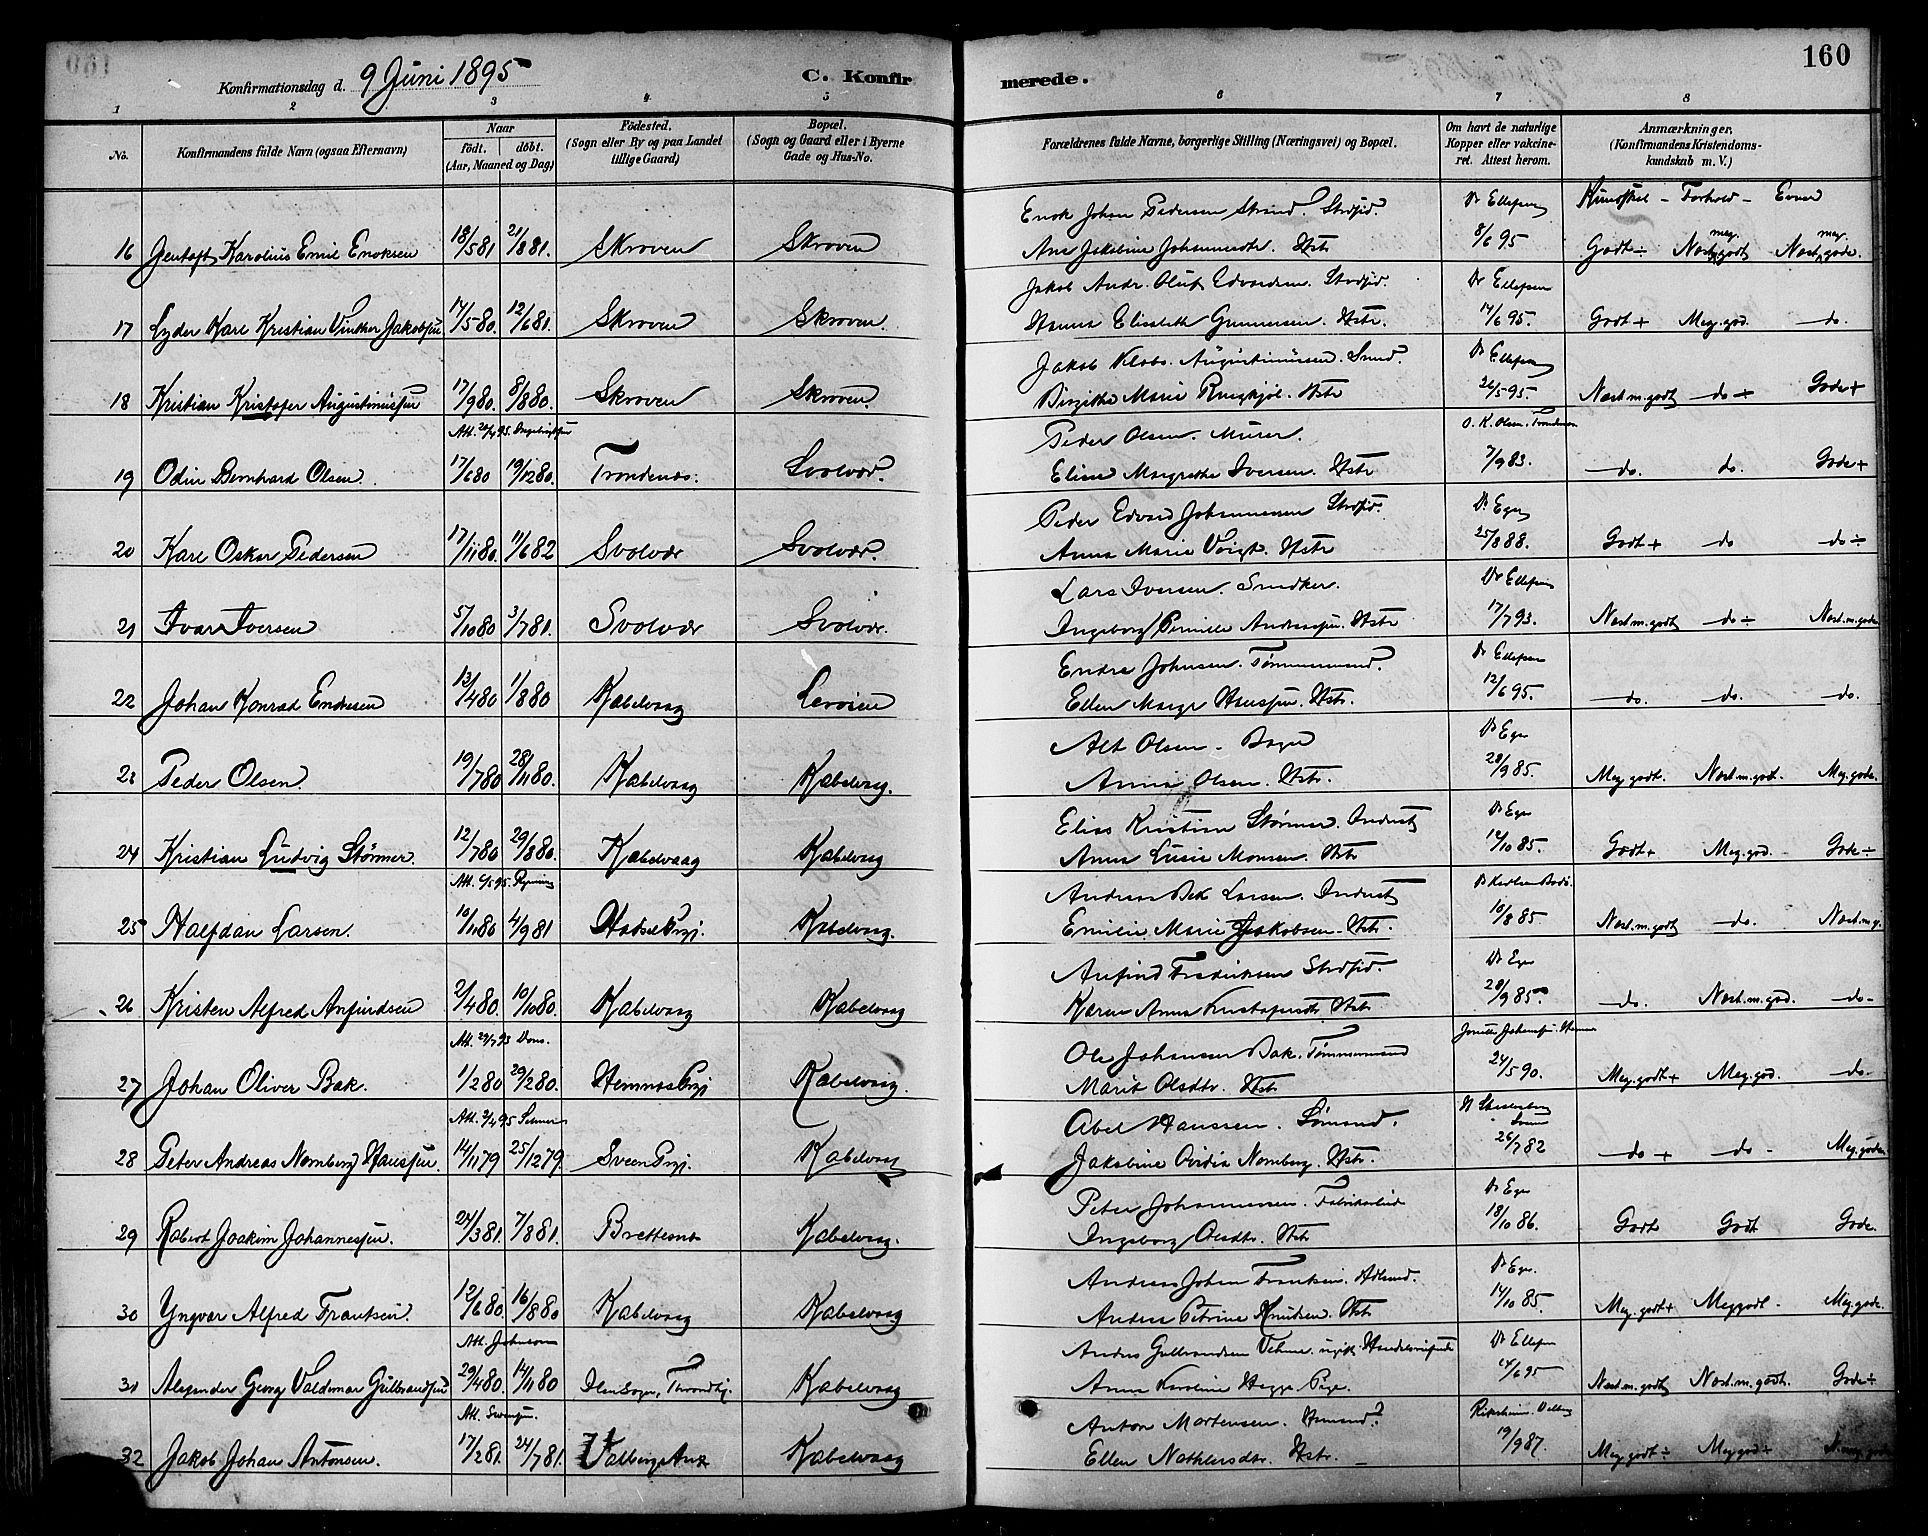 160
Konfirmationsdag d. 9 Juni 1895
C. Konfirmerede.
1 2 3 4 5 6 7 8
No.
Konfirmandens fulde Navn (ogsaa Efternavn)
Naar
födt. döbt.
(Aar, Maaned og Dag)
Födested.
(Sogn eller By og paa Landet
tillige Gaard)
Bopæl.
(Sogn og Gaard eller i Byerne
Gade og Hus-No.
Forældrenes fulde Navne, borgerlige Stilling (Næringsvei) og Bopæl.
Om havt de naturlige
Kopper eller vaccine-
ret. Attest herom.
Anmærkninger,
(Konfirmandens Kristendoms-
kundskab m. V.)
Enok Johan Pedersen Strand. Strdsid. Dr Ellefsen Kundskab - Forhold - Evner
16 Gentoft Karolius Emil Enoksen 18/5 81 21/8 81. Skroven Skroven Ane Jakobine Johannesdtr. Hstr 8/6 95 Godt ÷ Nost. meg. godt Nost. meg. gode.
Jakob Andr. Oluf Edvardsen. Strdsid. Dr Ellefsen
17 Lyder Karl Kristian Vinther Jakobsen 14/5 80. 12/6 81. Skroven Skroven. Hanna Elisabeth Gunnersen. Hstr. 14/6 95. Godt + Meg. god. do.
Jakob Klobs. Augustinussen. Smed. Dr Ellefsen
18 Kristian Kristofer Augustinussen 17/9 80. 8/8 80. Skroven Skroven. Birgitte Marie Ringkjøb. Hstr 26/5 95. Nost. m. godt do ÷ Gode +
Peder Olsen. Murer. O. K. Olsen. Trondenes
19 Odin Bernhard Olsen 17/6 80 19/12 80. Trondenes. Svolvær. Elise Margrethe Iversen. Hstr 7/9 83. do. do. Gode +
Peder Edvard Johannessen Strdsid. Dr Eger
20 Karl Oskar Pedersen 17/11 80. 11/6 82 Svolvær Svolvær. Anna Marie Voigt. Hstr 25/8 88. Godt + do do ÷
Lars Iversen. Snedker. Dr Ellefsen
21 Ivar Iversen 5/10 80 3/7 81. Svolvær Svolvær. Ingeborg Pernille Andreassen. Hstr 17/7 93. Nost. m. godt do ÷ Nost. m. gode
Endre Johnsen. Tømmermand. Dr Ellefsen
22 Johan Konrad Endresen 13/4 80 1/8 80 Kabelvaag Ellen Margr Hanssen. Hstr. 12/6 95. do. do. do.
Alt Olsen - Dr Eger
23 Peder Olsen. 19/7 80 28/11 80. Kabelvaag Kabelvaag. Anna Olsen. Hstr. 28/9 85. Meg. godt. Nost. m. godt. Meg. gode.
Elias Kristian Størmer. Dr Eger
24 Kristian Ludvig Størmer. 12/7 80 29/8 80. Kabelvaag Kabelvaag Anna Lusie Monsen. Hstr 14/10 85. Godt + Meg. god. Gode ÷
Andreas Bek Larsen.
25 Halfdan Larsen. 10/11 80 4/9 81 Hadsel Prgj. Kabelvaag. Emilie Marie Jakobsen. Hstr. 10/8 85 Nost. m. godt do. Nost. m. g.
Anfind Fredriksen Strdsid. Dr Eger
26 Kristen Alfred Anfindsen 2/4 80. 10/10 80. Kabelvaag Kabelvaag Karen Anna Kristofersdtr Hstr 28/9 85. do. Nost. m. god. do
Ole Johansen Bak. Tømmermand
27 Johan Oliver Bak. 1/2 80 29/2 80. Hemnæs Prgj Kabelvaag. Marit Olsdtr. Hstr 24/5 90. Meg. godt + Meg. god. do
Abel Hanssen. Sømand.
28 Peter Andreas Normberg Hanssen. 14/11 79 25/12 79. Sveen Prgj. Kabelvaag Jakobine Ovidia Normberg. Hstr. 26/7 82 do + do Meg. gode
Peter Johannessen. Dr Eger
29 Robert Joakim Johannessen. 24/3 81. 7/8 81. Brettesnes Kabelvaag. Ingeborg Olsdtr. Hstr 18/10 86. Godt Godt Gode.
Andreas Johan Frantsen. Dr Eger.
30 Yngvar Alfred Frantsen. 12/6 80. 16/8 80 Kabelvaag Kabelvaag Andrea Petrine Knudsen. Hstr 14/10 85. Meg. godt + Meg godt Meg. gode.
Anders Gulbrandsen Dr Ellefsen
31 Alexander Georg Valdemar Gulbrandsen 29/4 80. 14/11 80 Kabelvaag Anna Karoline Hegge Pige. 14/6 95 Nost. m. godt Nost. m. godt. Gode ÷
Anton Mortensen.
32 Jakob Johan Antonsen. 17/2 81. 24/7 81. Kabelvaag Ellen Hstr. 19/9 87. Meg. godt ÷ Meg god +